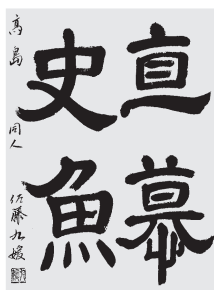 直慕
史魚
高島 同人 佐藤九媛